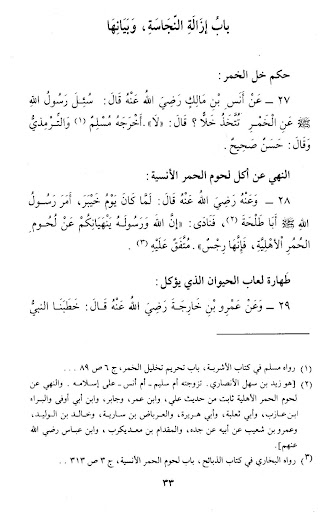 بابُ إزَالَةِ النَّجَاسَةِ، وَبَيَانِهَا
حكم خل الخمر:
٢٧ ــ عَنْ أَنَسِ بْنِ مَالِكٍ رَضِيَ اللَّهُ عَنْهُ قَالَ: سُئِلَ رَسُولُ اللَّهِ
ﷺ عَنِ الْخَمْرِ تُتَّخَذُ خَلًّا؟ قَالَ: «لَا». أَخْرَجَهُ مُسْلِمٌ (١) وَالتِّرْمِذِيُّ
وَقَالَ: حَسَنٌ صَحِيحٌ.
النهي عن أكل لحوم الحمر الأنسية:
٢٨ ــ وَعَنْهُ رَضِيَ اللَّهُ عَنْهُ قَالَ: لَمَّا كَانَ يَوْمُ خَيْبَرَ، أَمَرَ رَسُولُ
اللَّهِ ﷺ أَبَا طَلْحَةَ (٢)، فَنَادَى: «إِنَّ اللَّهَ وَرَسُولَهُ يَنْهَيَانِكُمْ عَنْ لُحُومِ
الْحُمُرِ الْأَهْلِيَّةِ، فَإِنَّهَا رِجْسٌ». مُتَّفَقٌ عَلَيْهِ (٣).
طهارة لعاب الحيوان الذي يؤكل:
٢٩ ــ وَعَنْ عَمْرِو بْنِ خَارِجَةَ رَضِيَ اللَّهُ عَنْهُ قَالَ: خَطَبَنَا النبيُّ
(١) رواه مسلم في كتاب الأشربة، باب تحريم تخليل الخمر، ج ٦ ص ٨٩ . . .
(٢) [هو زيد بن سهل الأنصاري. تزوجته أم سليم ـ أم أنس ـ على إسلامه. والنهي عن
لحوم الحمر الأهلية ثابت من حديث علي، وابن عمر، وجابر، وابن أبي أوفى والبراء
ابن عازب، وأبي ثعلبة، وأبي هريرة، والعرباض بن سارية، وخالد بن الوليد،
وعمرو بن شعيب عن أبيه عن جده، والمقدام بن معديكرب، وابن عباس رضي الله
عنهم].
(٣) رواه البخاري في كتاب الذبائح، باب لحوم الحمر الأنسية، ج ٣ ص ٣١٣ . . .
٣٣